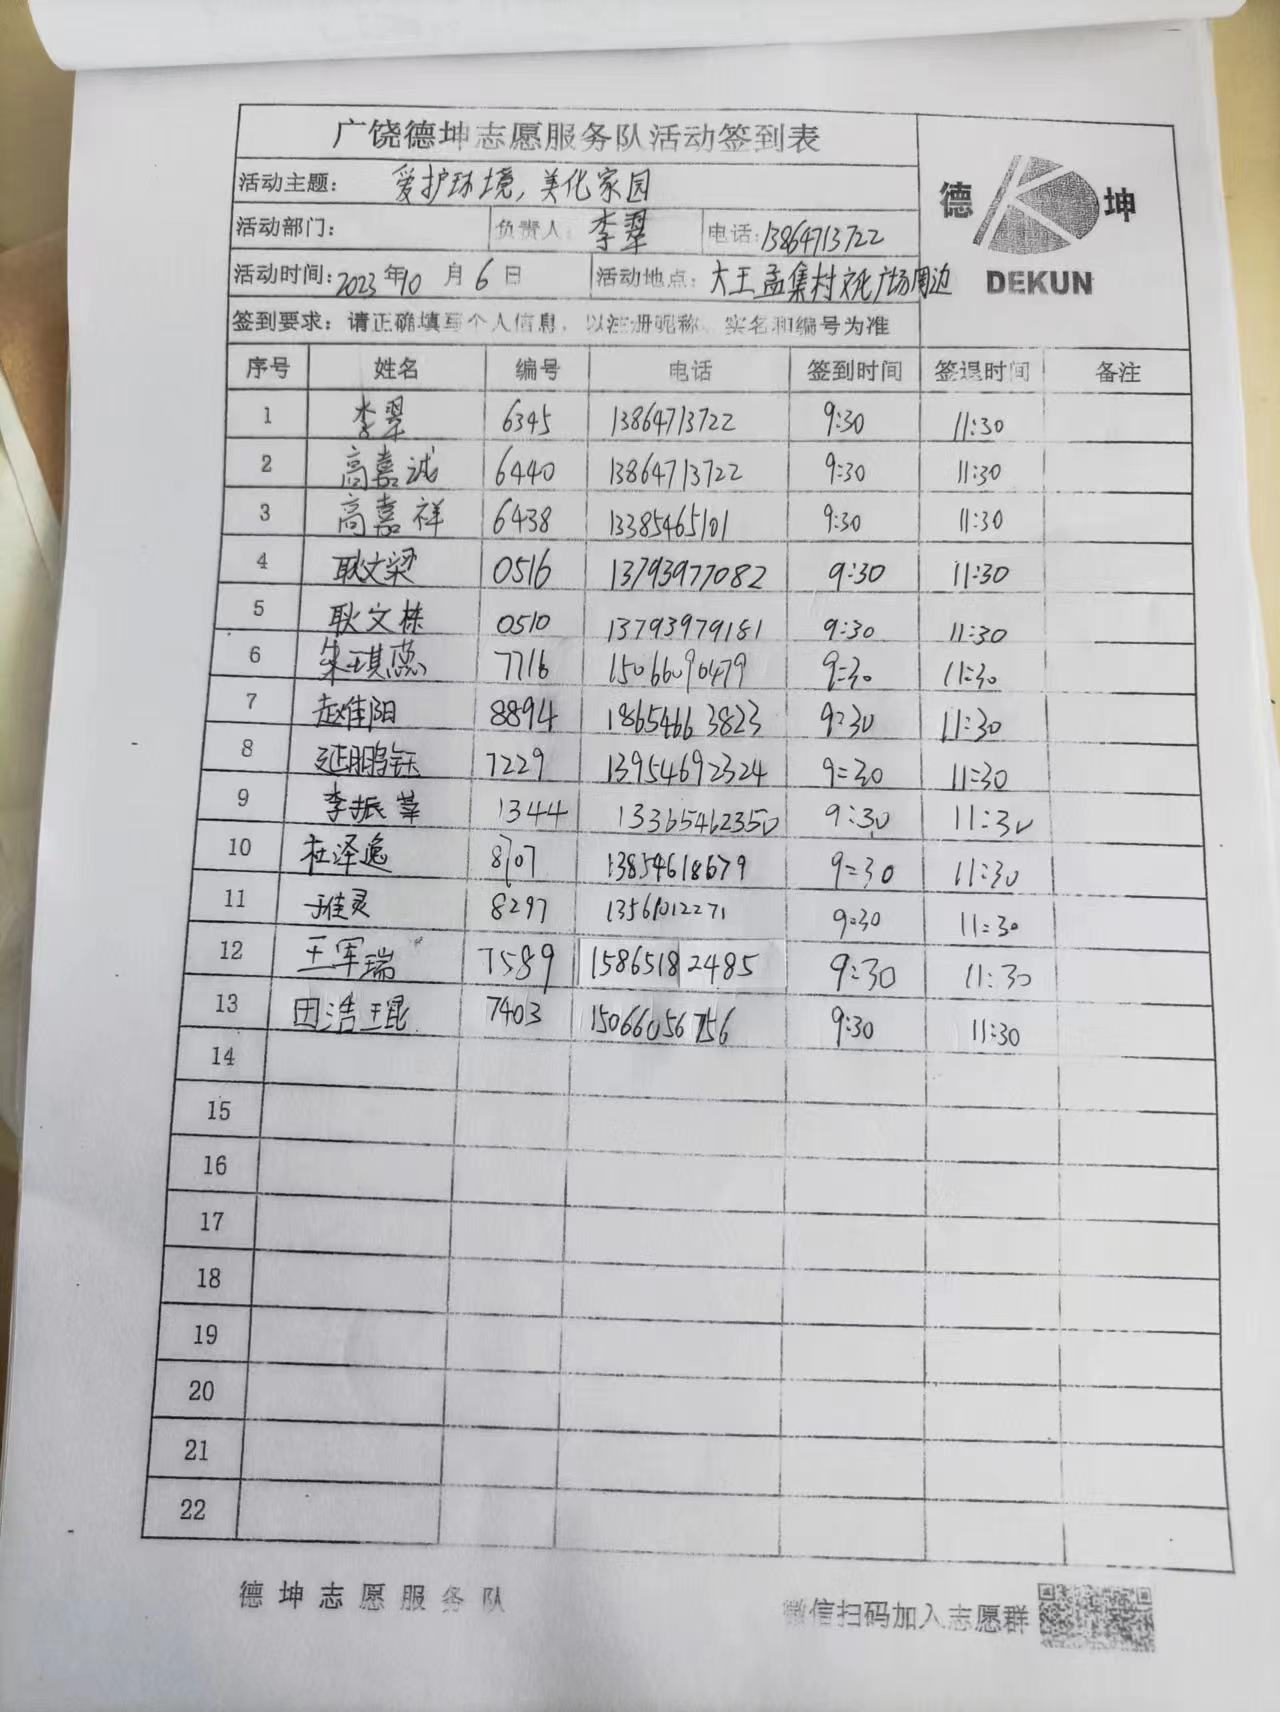 广饶德坤志愿服务队活动签到表
德 坤
DEKUN
活动主题： 爱护环境，美化家园
活动部门： 负责人：李翠 电话：13864713722
活动时间：2023年10月6日 活动地点：大王孟集村文化广场周边
签到要求：请正确填写个人信息，以注册昵称、实名和编号为准
序号 姓名 编号 电话 签到时间 签退时间 备注
1 李翠 6345 13864713722 9:30 11:30
2 高嘉诚 6440 13864713722 9:30 11:30
3 高嘉祥 6438 13385465101 9:30 11:30
4 耿文梁 0516 13793977082 9:30 11:30
5 耿文栋 0510 13793979181 9:30 11:30
6 朱琪蕊 7716 15066090479 9:30 11:30
7 赵佳阳 8894 18654663823 9:30 11:30
8 延鹏钰 7229 13954692324 9:30 11:30
9 李振華 1344 13365462350 9:30 11:30
10 杜泽逸 8707 13854618679 9:30 11:30
11 8297 13561012271 9:30 11:30
12 王军瑞 7589 15865182485 9:30 11:30
13 田浩琨 7403 15066056756 9:30 11:30
14
15
16
17
18
19
20
21
22
德坤志愿服务队
微信扫码加入志愿群